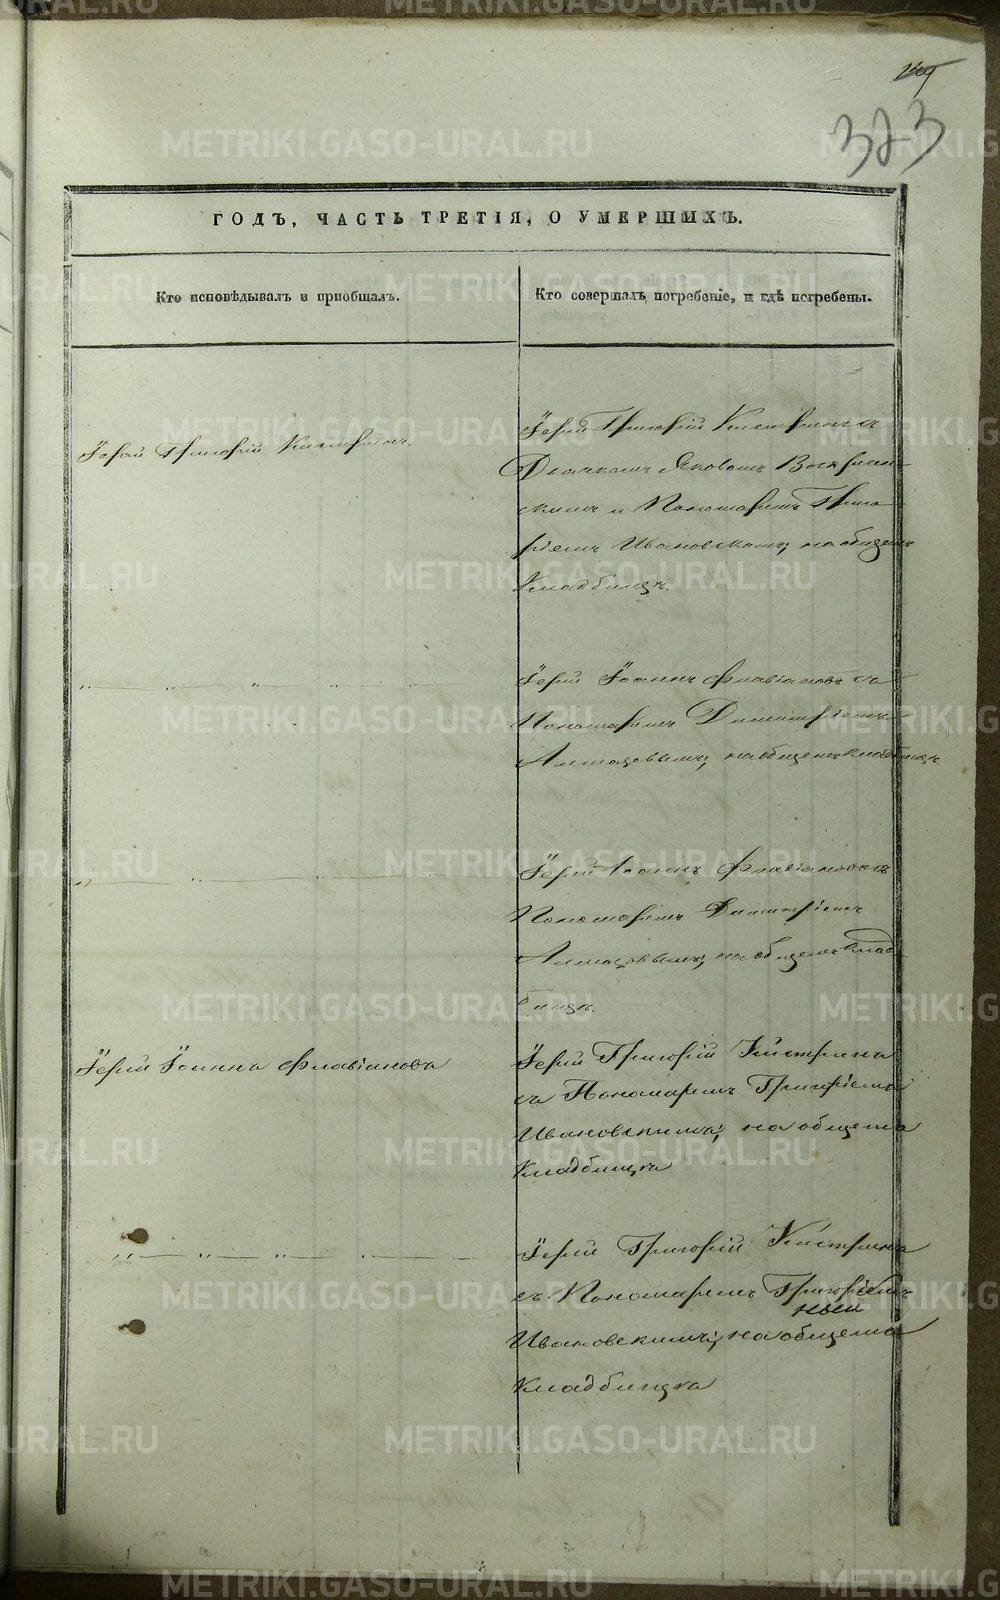 323
ГОДЪ, ЧАСТЬ ТРЕТІЯ, О УМЕРШИХЪ.
Кто исповѣдывалъ и пріобщалъ.
Кто совершалъ погребеніе, и гдѣ погребены.
Іерей Григорій
Іерей Григорій съ
Дьячкомъ Яковомъ Воскресен-
скимъ и Пономаремъ Григо-
ріемъ Ивановскимъ, на общемъ
Кладбищѣ.
" " " " "
Іерей Іоаннъ Флавіановъ съ
Пономаремъ Димитріемъ
Алмазовымъ, на общемъ кладбищѣ.
" " "
Іерей Іоаннъ Флавіановъ съ
Пономаремъ Димитріемъ
Алмазовымъ, на общемъ Клад-
бищѣ.
Іерей Іоаннъ Флавіановъ
Іерей Григорій
съ Пономаремъ Григоріемъ
Ивановскимъ, на общемъ
Кладбищѣ
" " " "
Іерей Григорій
съ Пономаремъ Григоріемъ
Ивановскимъ, на общемъ
Кладбищѣ
METRIKI.GASO-URAL.RU